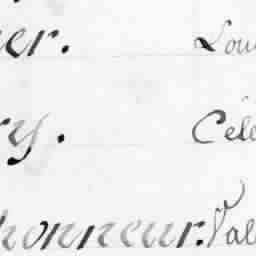 er. Lou
ry. Céle
honneur. Val